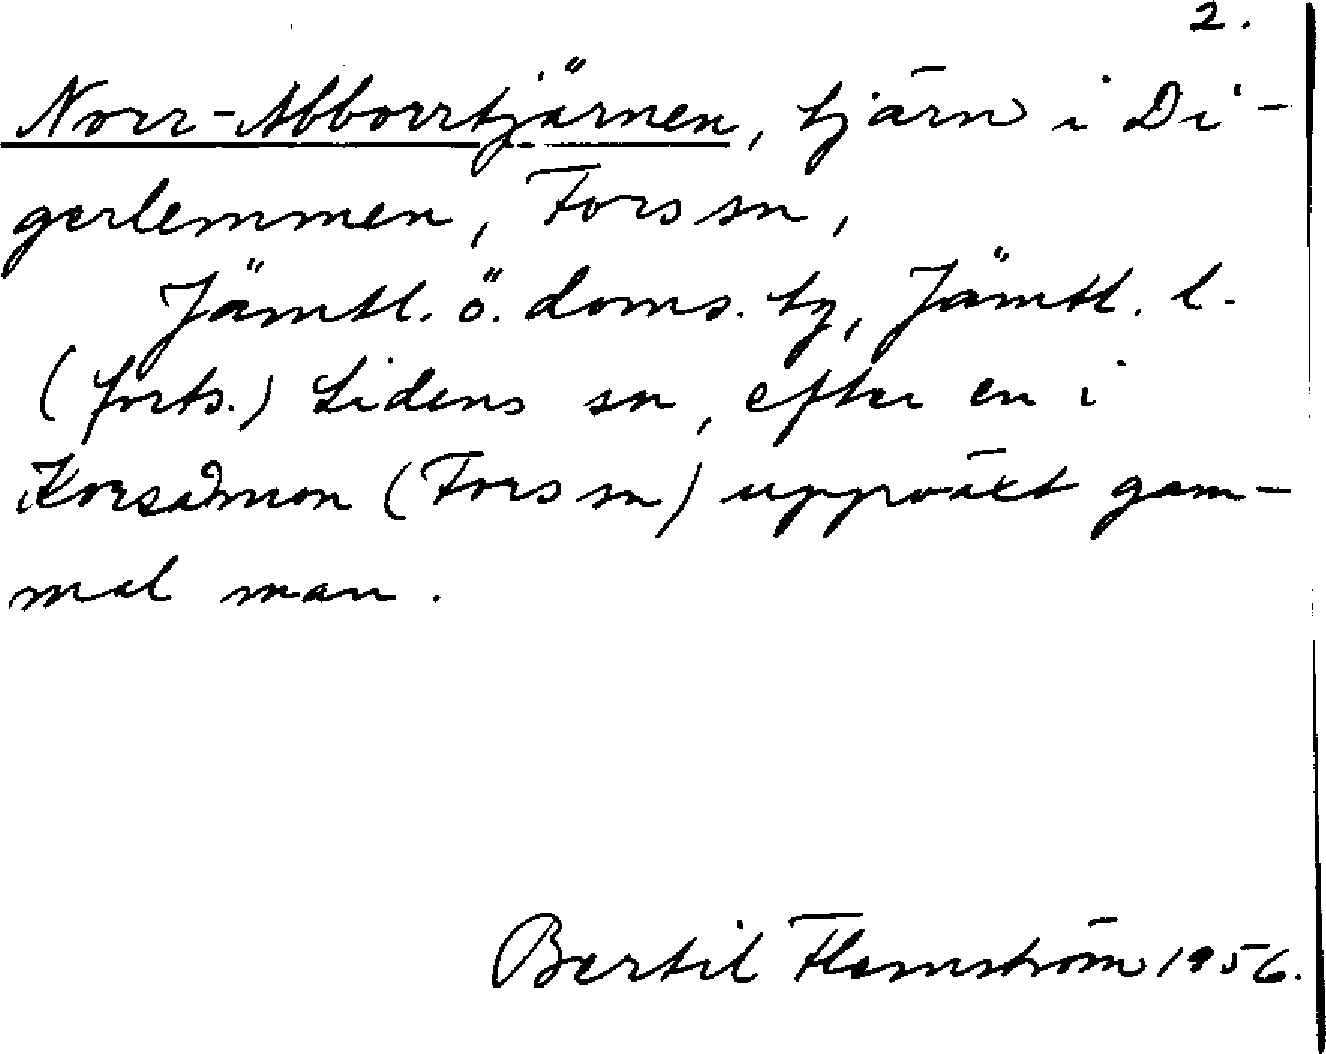 2.
Norr-Abborrtjärnen, tjärn i Di-
gerlemmen, Fors sn,
Jämtl. ö. doms. tg, Jämtl. l.
(forts.) Lidens sn, efter en i
Korsåmon (Fors sn) uppväxt gam-
mal man.
Bertil Flemström 1956.